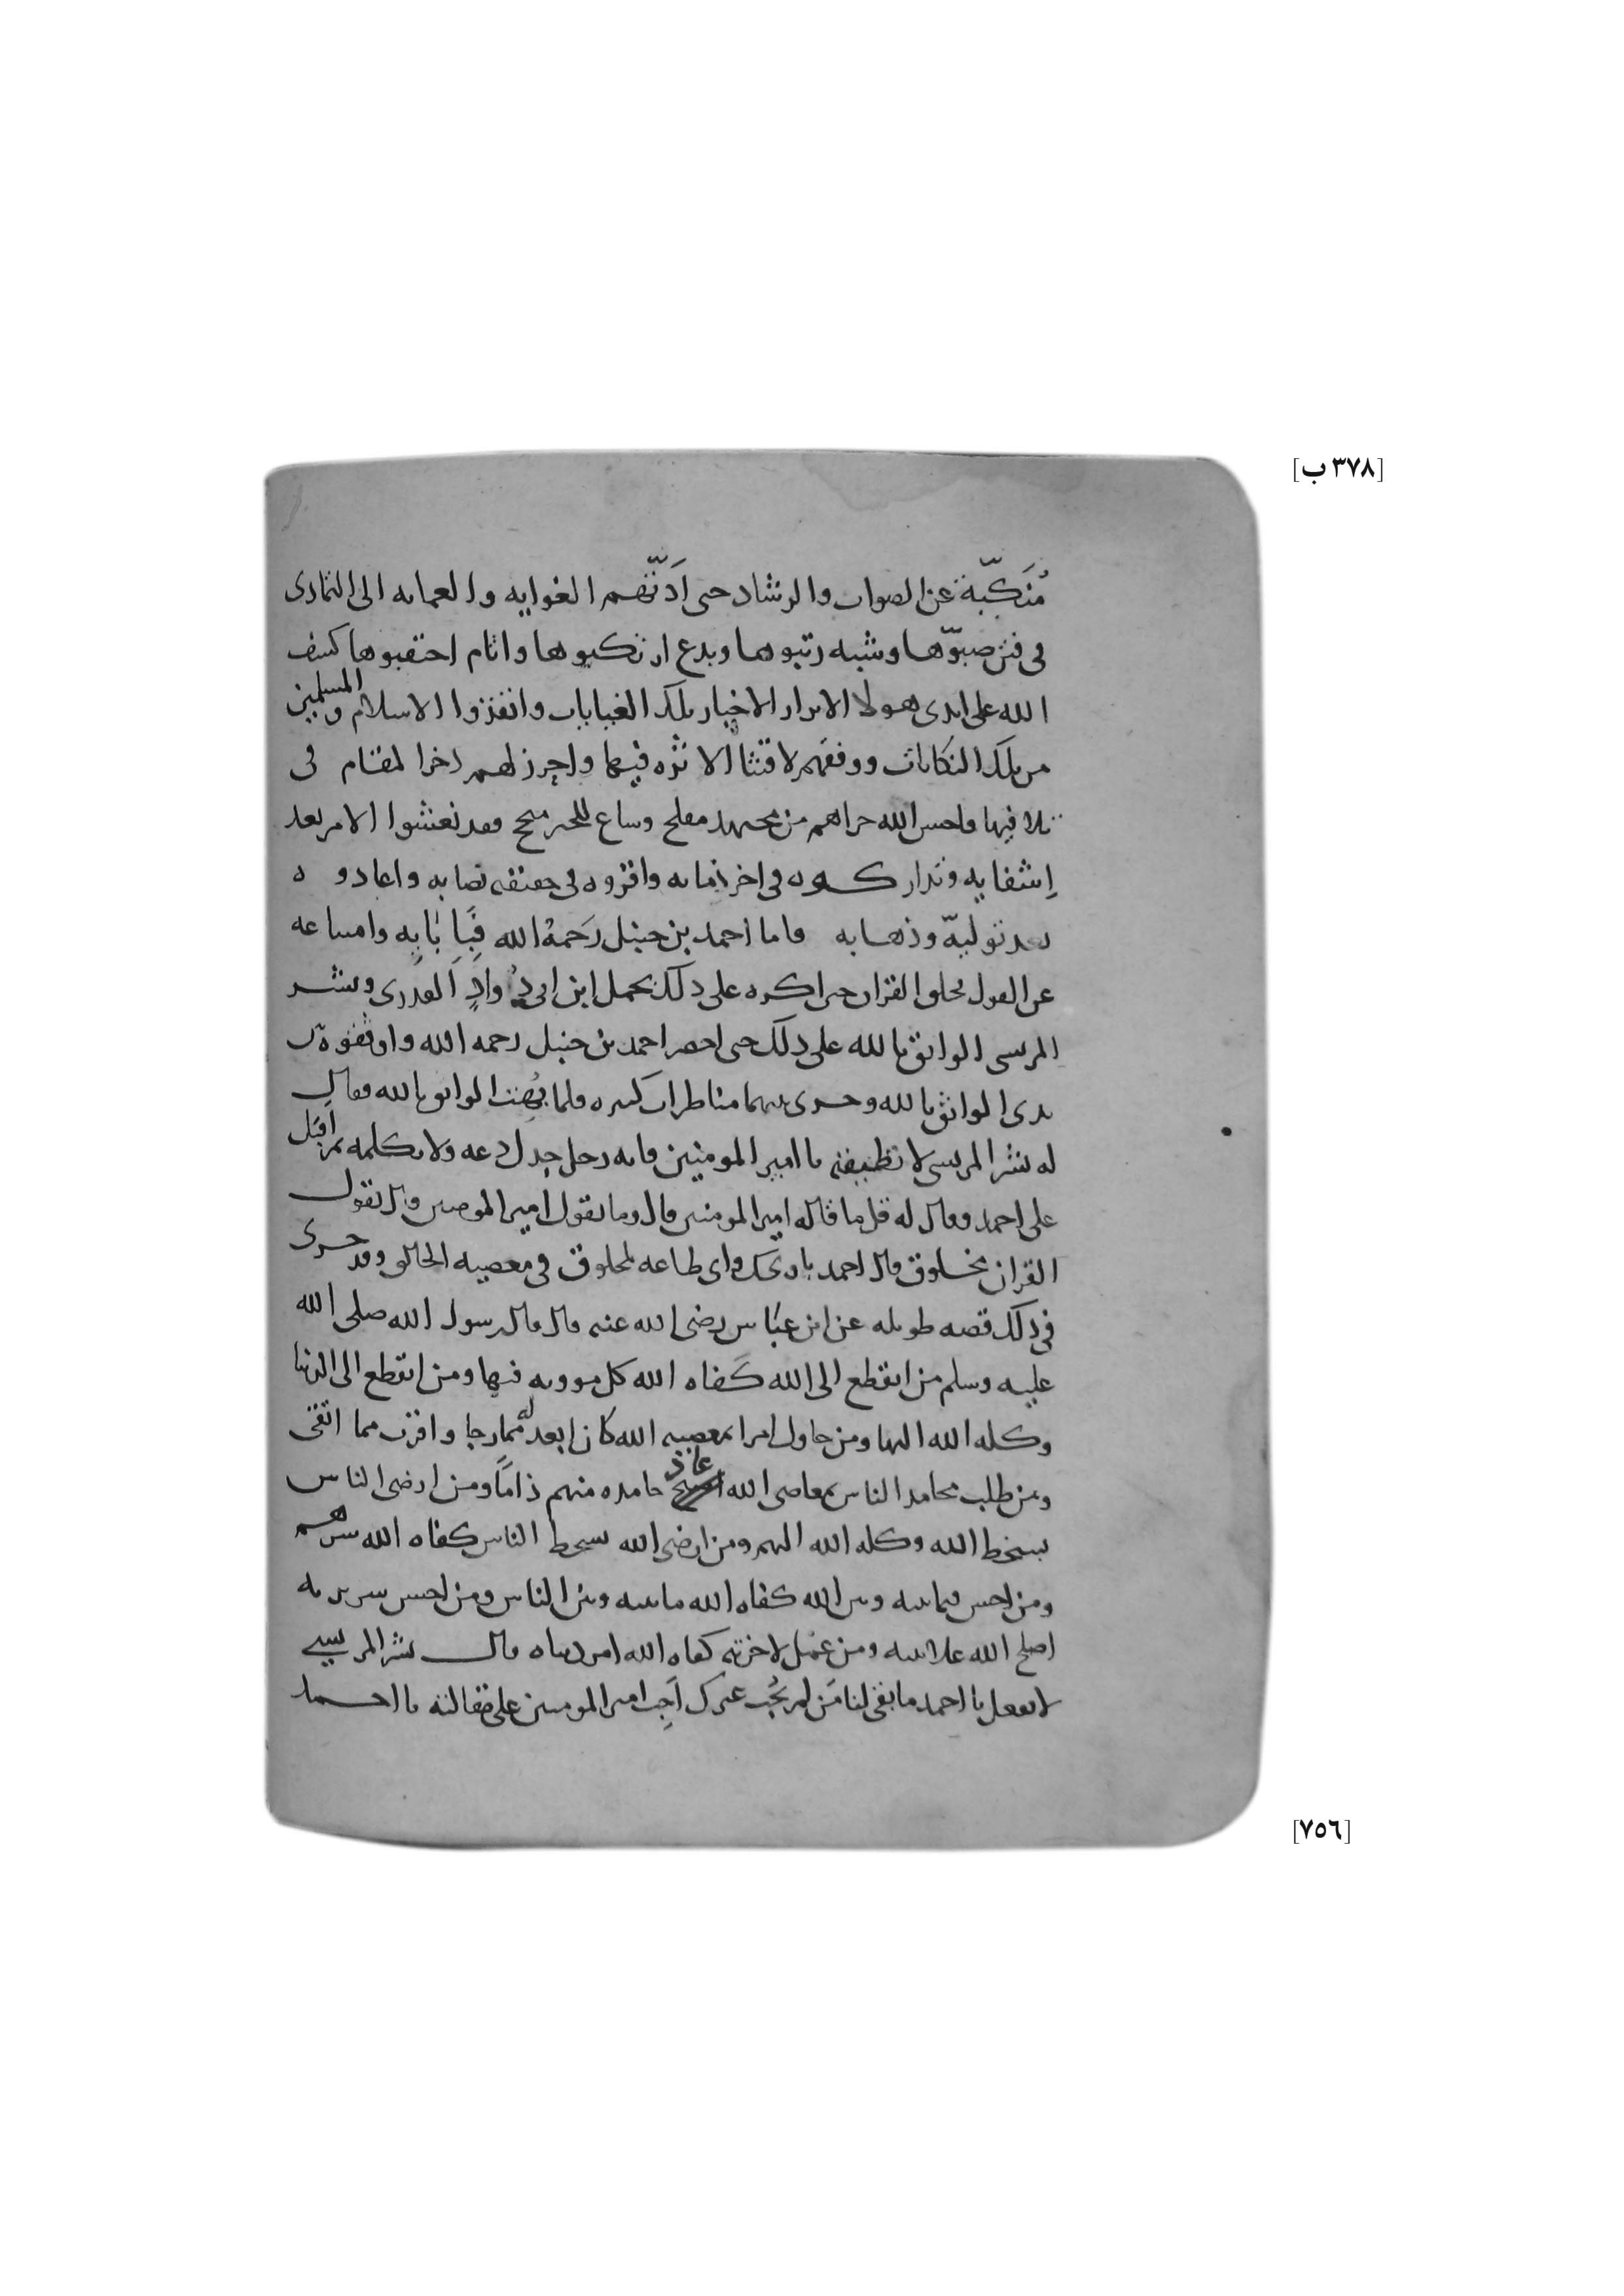 [٣٧٨ ب]
مُنَكّبة عن الصواب والرشاد حتى أدّتهم الغوايه والعمايه الى التمادى
فى فتن صبوّها وشبه رتبوها وبدع ارتكبوها واثام احتقبوها كشف
الله على ايدى هولا الابرار الاخيار تلك الغيابات وانقذوا الاسلام والمسلمين
من تلك النكايات ووفقهم لاقتنا الاثره فيها واحرز لهم ذخرا لمقام فى
تلافيها فاحسن الله جزاهم من مجتهد مفلح وساع للخير منجح فقد نعشوا الامر بعد
إشفايه وتداركوه فى اخر ذمايه واقروه فى نصابه واعادوه
بعد توليّه وذهابه فاما احمد بن حنبل رَحمهُ الله فبإبايه وامتناعه
عن القول بخلق القران حين اكره على ذلك بحمل ابن ابى دُواد القدرى وبشر
المريسى الواثق بالله على ذلك حتى احضر احمد بن حنبل رحمه الله واوقفوه بين
يدى الواثق بالله وجرى بينهما مناظرات كثيره فلما بُهِت الواثق بالله فقال
له بشر المريسى لا تطيقنه يا امير المومنين فانه رجل جدل دعه ولا تكلمه ثم اقبل
على احمد وقال له قل ما قاله امير المومنين قال وما يقول امير المومنين قال يقول
القران مخلوق قال احمد بادى واى طاعه لمخلوق فى معصيه الخالق وقد جرى
فى ذلك قصه طويله عن ابن عبّاس رضى الله عنه قال قال رسول الله صلى الله
عليه وسلم من انقطع الى الله كَفاه الله كل موونه فيها ومن انقطع الى الدنيا
وكله الله اليها ومن حاول امرا بمعصيه الله كان ابعد له مما رجا واقرب مما اتقى
ومن طلب محامد الناس بمعاصى الله عاد حامده منهم ذامًا ومن ارضى الناس
بسخط الله وكله الله اليهم ومن ارضى الله بسخط الناس كفاه الله شرهم
ومن احسن فيما بينه وبين الله كفاه الله ما بينه وبين الناس ومن احسن سريرته
اصلح الله علانيته ومن عمل لاخرته كفاه الله امر دنياه قال بشر المريسى
لا تفعل يا احمد ما بقى لنا مَن لم يُجب غيرك أجِب امير المومنين على مقالته يا احمد
[٧٥٦]